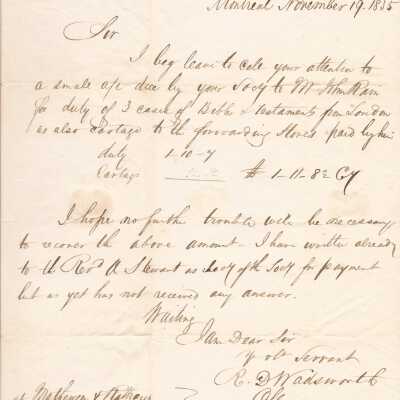 Montreal November 19. 1835
Sir
I beg leave to call your attention to
a small a/c due by your Socy to Mr John
for duty of 3 cases of Bibles & testaments from London
as also Cartage to the forwarding Stores paid by him
duty 1-10-7
Cartage 1-11-8½ Cy
I hope no further trouble will be necessary
to recover the above amount - I have written already
to the Revd A Stewart as of the Socy for payment
but as yet has not received any answer.
Waiting
I am Dear Sir
yr obt Servant
R. D Wadsworth